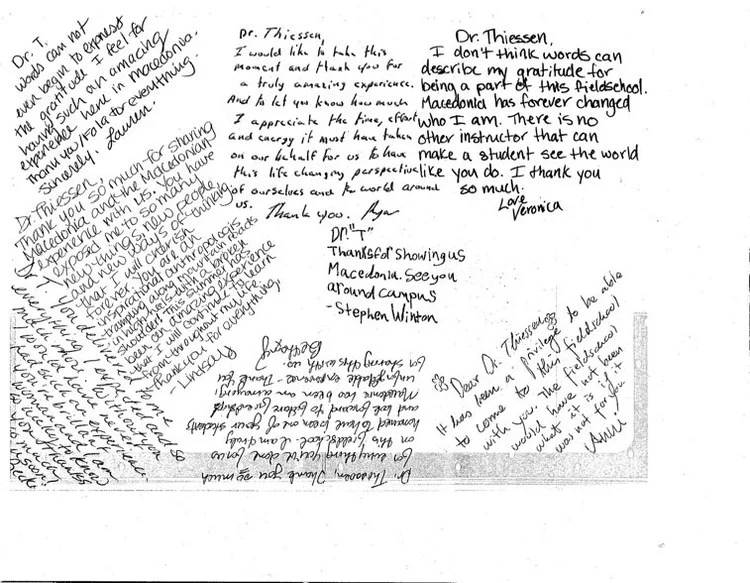 Dr. T.
words can not
even begin to express
the gratitude I feel for
having such an amazing
experience here in macedonia.
Thank you Fala for everything.
Sincerely, Lauren.
Dr. Thiessen,
I would like to take this
moment and thank you for
a truly amazing experience.
And to let you know how much
I appreciate the time, effort
and energy it must have taken
on our behalf for us to have
this life changing perspective
of ourselves and the world around
us.
Thank you. Ryan
Dr. Thiessen,
I don't think words can
describe my gratitude for
being a part of this fieldschool.
Macedonia has forever changed
who I am. There is no
other instructor that can
make a student see the world
like you do. I thank you
so much.
Love
Veronica
Dr. Thiessen,
Thank you so much for sharing
Macedonia and the Macedonian
experience with us. You have
exposed me to so many
new things, new people
and new ways of thinking
that I will cherish
forever. You are an
inspirational anthropologist
tramping along mountain tracts
in night with a broken
shoulder. This summer has
been an amazing experience
that I will continue to learn
from throughout my life.
Thank you for everything.
- Lindsay
Dr. "T"
Thanks for showing us
Macedonia. See you
around campus
- Stephen Winton
Dr. Thiessen, Thank you so much
for everything you've done for us
on this fieldschool. I am truly
honoured to have been one of your students
and look forward to future friendship
Macedonia has been an amazing
unforgettable experience - Thank you
for sharing this with us.
Bethany
Dear Dr. Thiessen
It has been a privilege to be able
to come to this fieldschool
with you. The fieldschool
would have not been
what it is if it
was not for you